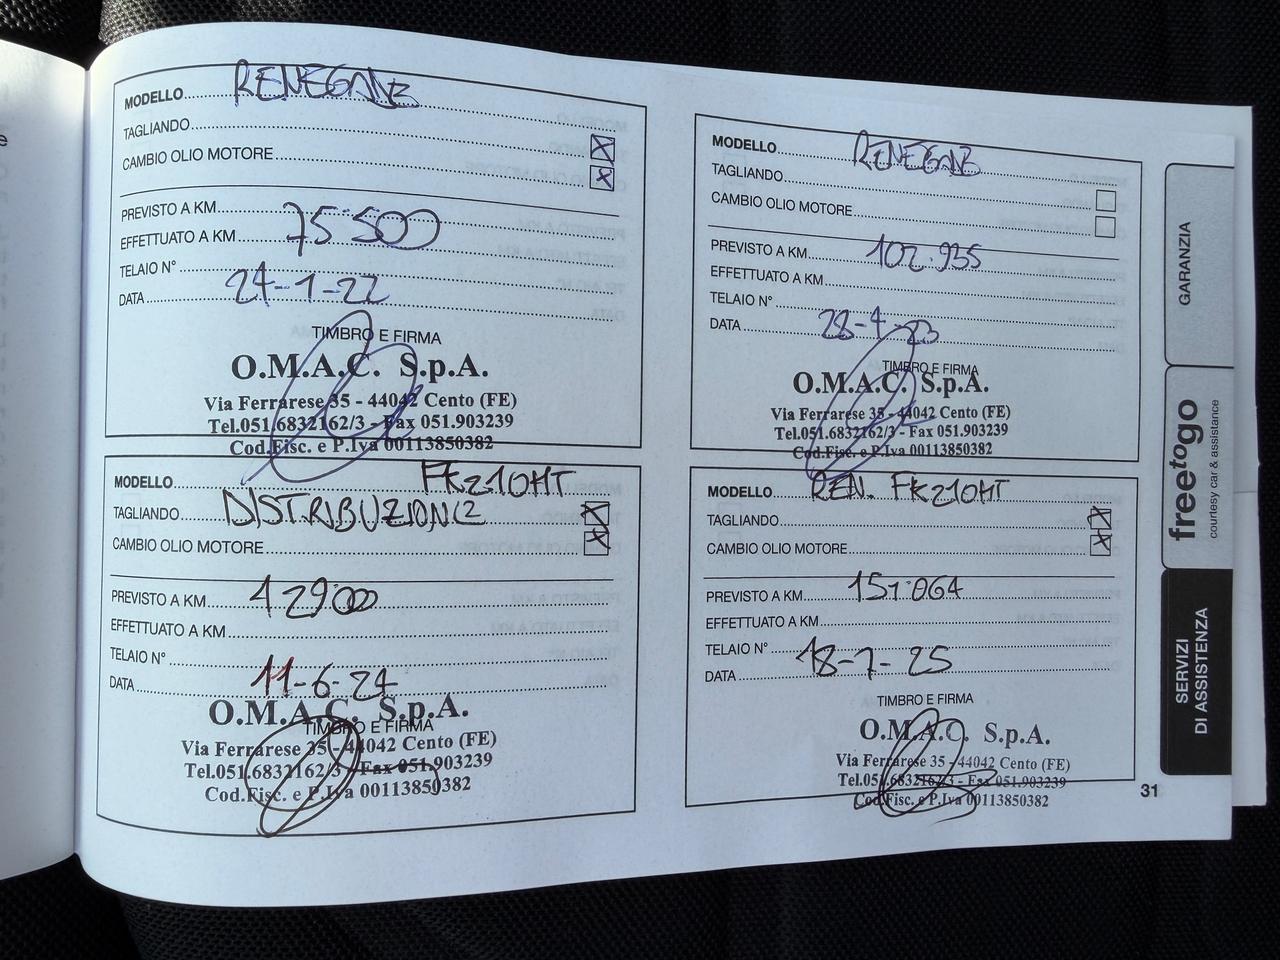 MODELLO RENEGADE
TAGLIANDO
CAMBIO OLIO MOTORE
PREVISTO A KM 75500
EFFETTUATO A KM
TELAIO N°
DATA 24-1-22
TIMBRO E FIRMA
O.M.A.C. S.p.A.
Via Ferrarese 35 - 44042 Cento (FE)
Tel.051.6832162/3 - Fax 051.903239
Cod.Fisc. e P.Iva 00113850382
MODELLO FK210HT
TAGLIANDO DISTRIBUZIONE
CAMBIO OLIO MOTORE
PREVISTO A KM 12900
EFFETTUATO A KM
TELAIO N°
DATA 11-6-24
O.M.A.C. S.p.A.
TIMBRO E FIRMA
Via Ferrarese 35 - 44042 Cento (FE)
Tel.051.6832162/3 - Fax 051.903239
Cod.Fisc. e P.Iva 00113850382
MODELLO RENEGADE
TAGLIANDO
CAMBIO OLIO MOTORE
PREVISTO A KM 102.935
EFFETTUATO A KM
TELAIO N°
DATA 28-4-23
TIMBRO E FIRMA
O.M.A.C. S.p.A.
Via Ferrarese 35 - 44042 Cento (FE)
Tel.051.6832162/3 - Fax 051.903239
Cod.Fisc. e P.Iva 00113850382
MODELLO REN. FK210HT
TAGLIANDO
CAMBIO OLIO MOTORE
PREVISTO A KM 151.064
EFFETTUATO A KM
TELAIO N°
DATA 18-7-25
TIMBRO E FIRMA
O.M.A.C. S.p.A.
Via Ferrarese 35 - 44042 Cento (FE)
Tel.051.6832162/3 - Fax 051.903239
Cod.Fisc. e P.Iva 00113850382
31
GARANZIA
freetogo
courtesy car & assistance
SERVIZI
DI ASSISTENZA